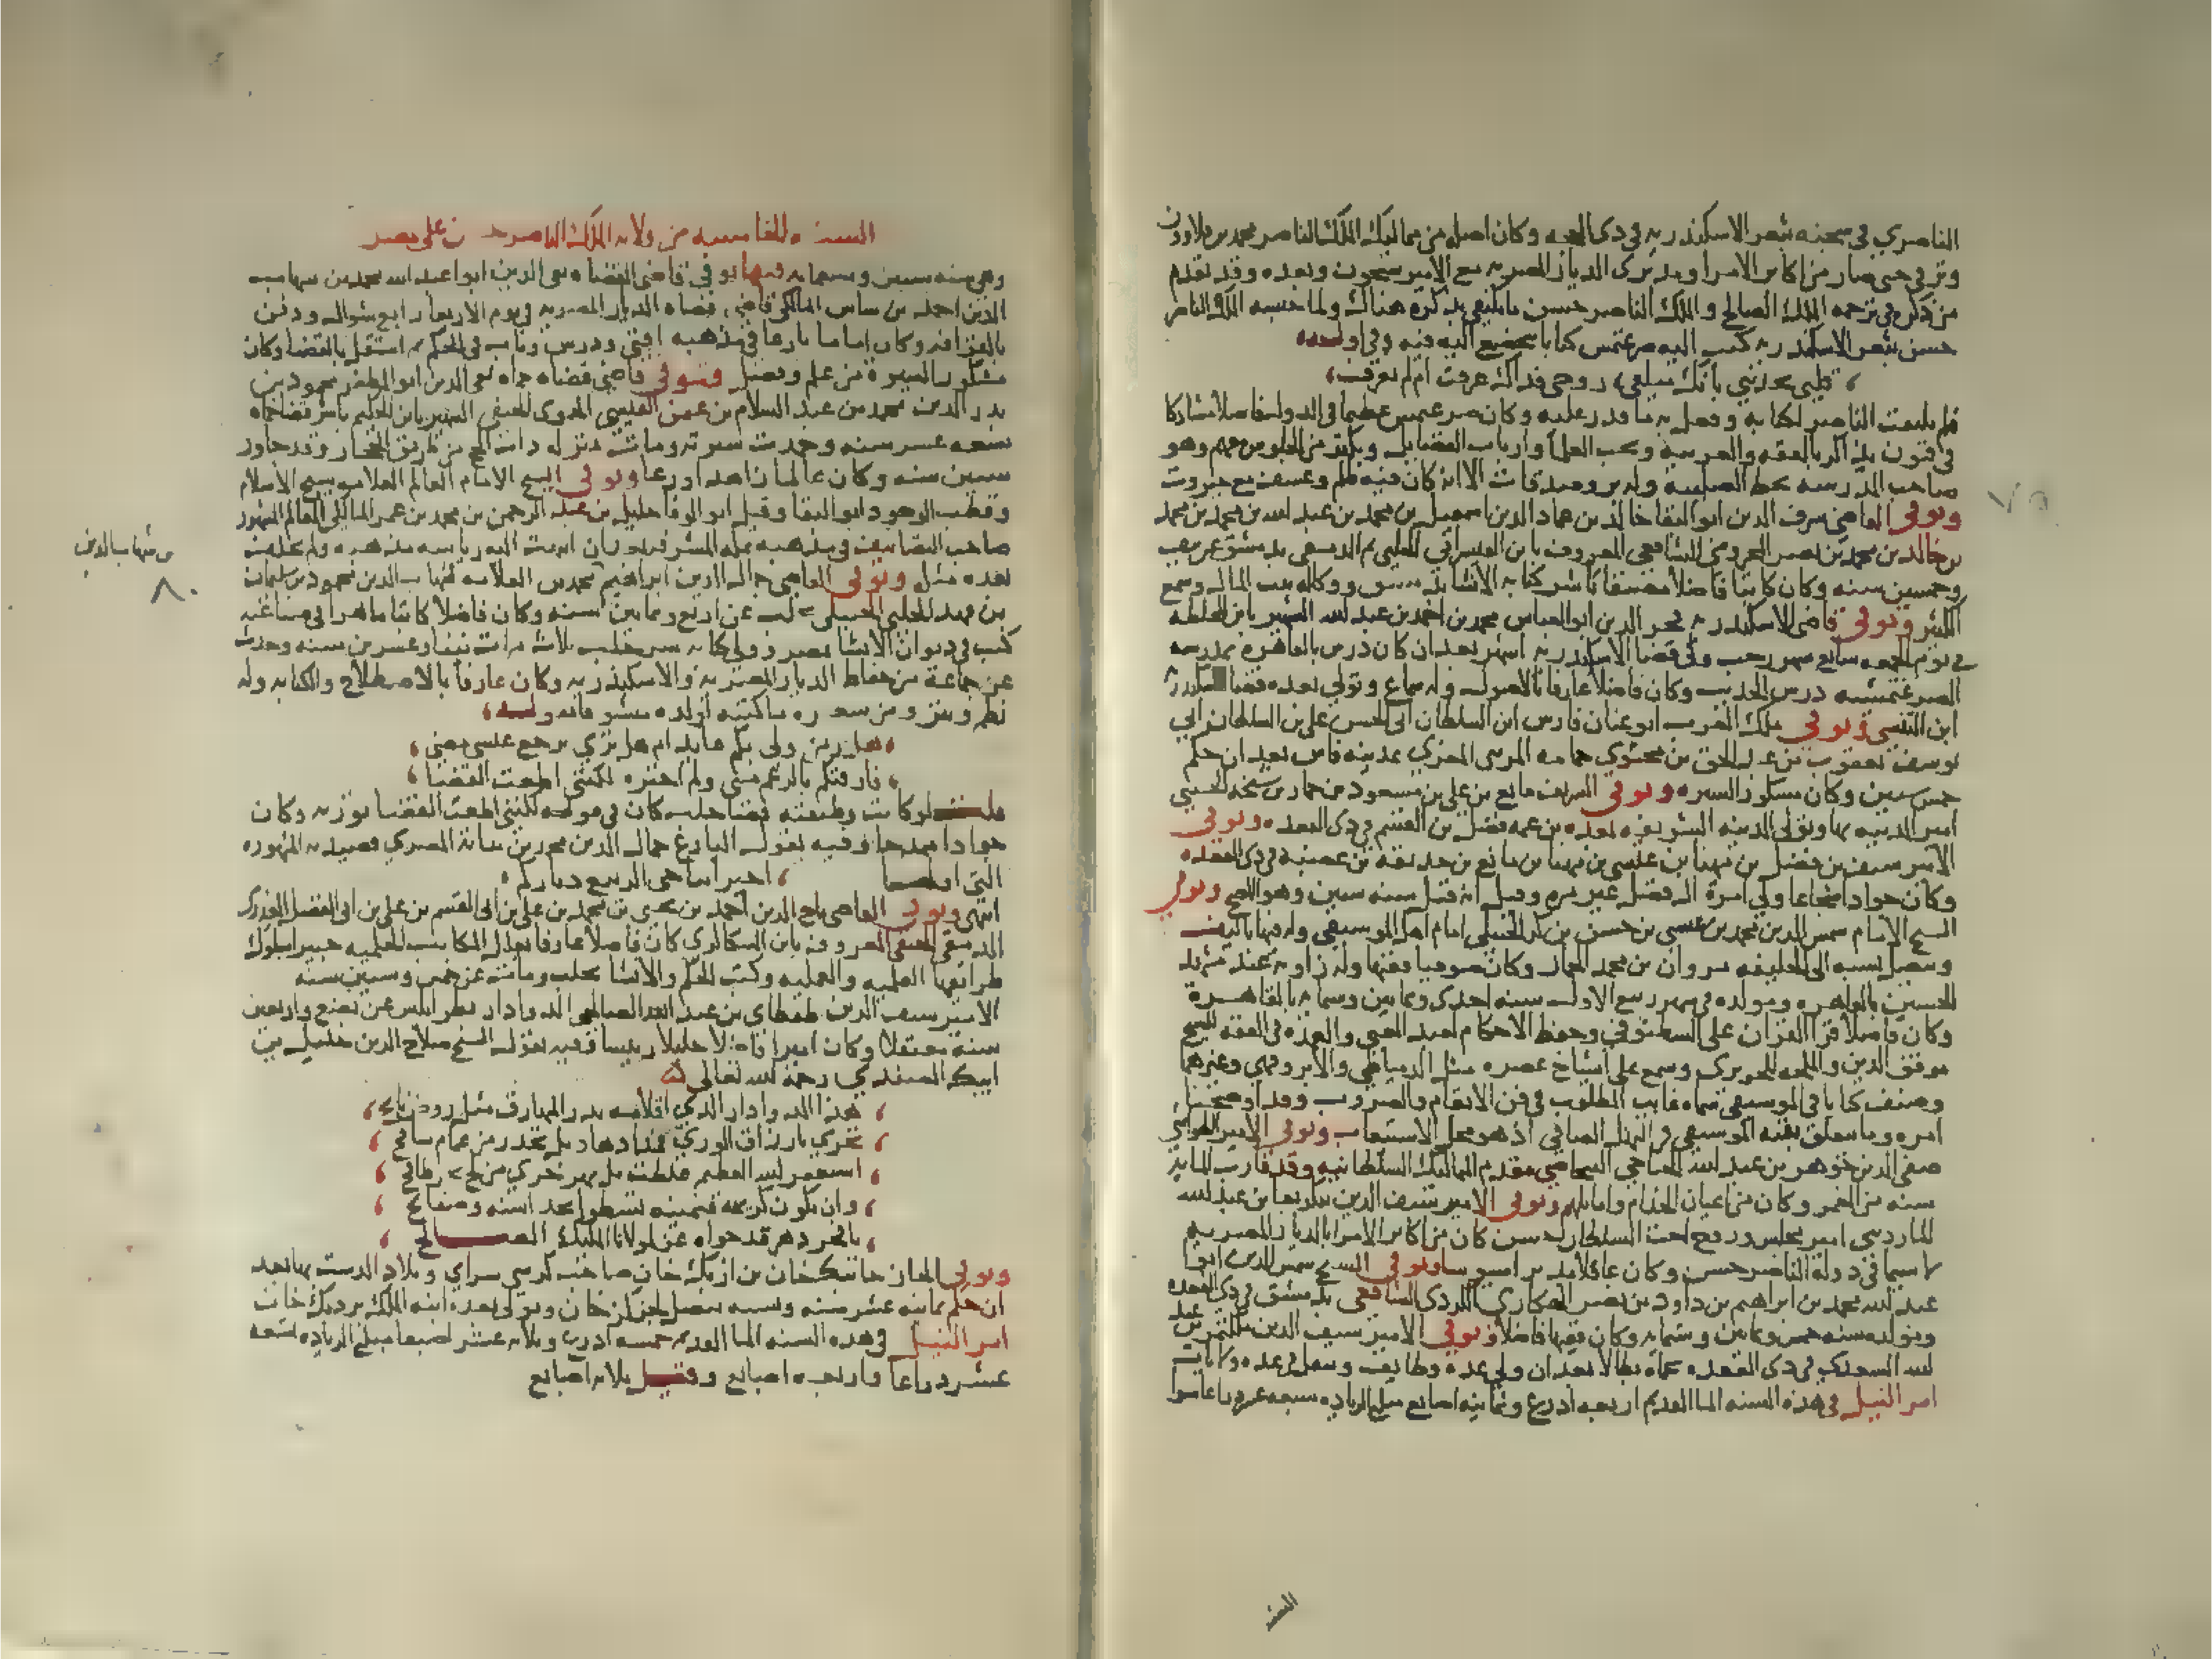 الناصري في سجنه بثغر الاسكندرية في ذي الحجه وكان اصله من مماليك الملك الناصر محمد بن قلاوون
وترقي حتي صار من اكابر الامرا ومدبري الديار المصريه مع الامير شيخون وبعده وقد تقدم
من ذكره في ترجمه الملك الصالح والملك الناصر حسن ما يكتفي بذكره هناك ولما حبسه الملك الناصر
حسن بثغر الاسكندريه كتب اليه صرغتمش كتابا يتخضع اليه فيه وفي اوله
قلبي يحدثني بانك متلفي روحي فداك عرفت ام لم تعرف
فلم يلتفت الناصر لكتابه وفعل به ما قدر عليه وكان صرغتمش عظيما في الدوله فاضلا مشاركا
في فنون يذاكر بالفقه والعربية ويحب العلما وارباب الفضايل ويكثر من الجلوس معهم وهو
صاحب المدرسه بخط الصليبه وله بر وصدقات الا انه كان فيه ظلم وعسف مع جبروت
وتوفي القاضي شرف الدين ابو البقا خالد بن عماد الدين اسمعيل بن محمد بن عبد الله بن محمد بن محمد
بن خالد بن محمد بن نصر المخزومي الشافعي المعروف بابن القيسراني الحلبي ثم الدمشقي بدمشق عن نيف
وخمسين سنه وكان كاتبا فاضلا مصنفا باشر كتابه الانشا بدمشق ووكاله بيت المال وسمع
الكثير وتوفي قاضي الاسكندريه فخر الدين ابو العباس محمد بن احمد بن عبد الله الشهير بابن المخلطه
في يوم الجمعه سابع شهر رجب ولي قضا الاسكندريه اشهر بعد ان كان درس بالقاهره بمدرسه
الصرغتمشيه درس الحديث وكان فاضلا عارفا بالاصول وله سماع وتولي بعده قضا اسكندريه
ابن التنسي وتوفي ملك الغرب ابو عنان فارس ابن السلطان ابي الحسن علي بن السلطان ابي
يوسف يعقوب بن عبد الحق بن محيو بن حمامه المريني المغربي بمدينه فاس بعد ان حكم
خمس سنين وكان مشكور السيره وتوفي الشريف مانع بن علي بن مسعود بن جماز بن شيحه الحسيني
امير المدينه بها وتولي المدينه الشريفه بعده بن عمه فضل بن القسم في ذي القعده وتوفي
الامير سيف بن فضل بن مهنا بن عيسي بن مهنا بن مانع بن حديثه بن عصية في ذي القعده
وكان جوادا شجاعا ولي امرة ال فضل غير مره وقيل انه قتل سنه ستين وهو الاصح وتوفي
الشيخ الامام شمس الدين محمد بن عيسي بن حسن بن كر الحنبلي امام اهل الموسيقي وله فيها تصانيف
ويتصل نسبه الي الخليفه مروان بن محمد الحمار وكان صوفيا فقيها وله زاويه عند مشهد
الحسين بالقاهره ومولده في شهر ربيع الاول سنه احدي وثمانين وستمايه بالقاهرة
وكان فاضلا قرا القران علي الشطنوفي وحفظ الاحكام لعبد الغني والعمده في الفقه للشيخ
موفق الدين والملحه للحريري وسمع علي اشياخ عصره مثل الدمياطي والابرقوهي وغيرهما
وصنف كتابا في الموسيقي سماه غايه المطلوب في فن الانغام والضروب وقد اوضحنا
امره وما يتعلق بفنه الموسيقي في المنهل الصافي اذ هو محل الاستيعاب وتوفي الامير الطواشي
صفي الدين جوهر بن عبد الله الجناحي مقدم المماليك السلطانيه وقد قارب المايه
سنه من العمر وكان من اعيان الخدام واماثلهم وتوفي الامير سيف الدين بن عبد الله
المارديني امير مجلس وزوج اخت السلطان حسن كان من اكابر الامرا بالديار المصريه
لا سيما في دولة الناصر حسن وكان عاقلا مدبرا سيوسا وتوفي الشيخ شمس الدين ابو
عبد الله محمد بن ابراهيم بن داود بن نصر الهكاري الكردي الشافعي بدمشق في ذي القعده
ومولده سنه خمس وثمانين وستمايه وكان فقيها فاضلا وتوفي الامير سيف الدين ملكتمر بن عبد
الله السعيدي في ذي القعده بحماة بطالا بعد ان ولي عده وظايف وتنقل في عده ولايات
امر النيل في هذه السنه الما القديم اربعه اذرع وثمانيه اصابع مبلغ الزياده سبعه عشر ذراعا سوا
السنه
السنه الخامسه من ولايه الملك الناصر حسن علي مصر
وهي سنه ستين وسبعمايه فيها توفي قاضي القضاه تقي الدين ابو عبد الله محمد بن شهاب
الدين احمد بن شاس المالكي قاضي قضاه الديار المصريه في يوم الاربعا رابع شوال ودفن
بالقرافه وكان اماما بارعا في مذهبه افتي ودرس وناب في الحكم ثم استقل بالقضا وكان
مشكور السيرة من علم وفضل وتوفي قاضي قضاه حماه تقي الدين ابو المظفر محمود بن
بدر الدين محمد بن عبد السلام بن عثمن القيسي الحموي الحنفي الشهير بابن الحكيم باشر قضا حماه
بضعه عشر سنه وحمدت سيرته ومات بمنزله ذات الحج من طريق الحجاز وقد جاوز
ستين سنه وكان عالما زاهدا ورعا وتوفي الشيخ الامام العالم العلامه شيخ الاسلام
وقطب الوجود ابو البقا وقيل ابو الوفا خليل بن عبد الرحمن بن محمد بن عمر المالكي العالم المشهور
صاحب التصانيف في مذهبه بمكه المشرفه وكان انتهت اليه رياسه مذهبه ولم يخلف
بعده مثله وتوفي القاضي جمال الدين ابراهيم بن محمد بن العلامه شهاب الدين محمود بن سلمان
بن فهد الحلبي الحنبلي بحلب عن اربع وثمانين سنه وكان فاضلا كاتبا ماهرا في صناعته
كتب في ديوان الانشا بمصر وولي كتابه سر حلب ثلاث مرات نيفا وعشرين سنه وحدث
عن جماعة من حفاظ الديار المصريه والاسكندريه وكان عارفا بالاصطلاح والكتابه وله
نظم ونثر ومن شعره ما كتبه لولده يتشوقانه وليه
فارقتكم بالرغم مني ولم اختره لكنني اطعت القضا
قلت لو كانت وظيفته قضا حلب كان في قوله لكنني اطعت القضا توريه وكان
جوادا ممدحا وفيه يقول البارع جمال الدين محمد بن نباتة المصري قصيدته المشهوره
التي اولها احبابنا حيي الربيع دياركم
انتهي وتوفي القاضي تاج الدين احمد بن يحيي بن محمد بن علي بن ابي القسم بن علي بن ابي الفضل العذري
الدمشقي الحنفي المعروف بابن السكاكري كان فاضلا عارفا بعلل المكاتيب الحكميه خبيرا بسلوك
طرائقها العلميه والعمليه وكتب الحكم والانشا بحلب ومات عن خمس وستين سنه
الامير سيف الدين طقطاي بن عبد الله الصالحي الدوادار بطرابلس عن بضع واربعين
سنة معتقلا وكان اميرا فاضلا جليلا رييسا وفيه يقول الشيخ صلاح الدين خليل بن
ايبك الصفدي رحمه الله تعالي
هذا الدوادار الذي اقلامه بدر المهارق مثل روض
تجري بارزاق الوري فمدادها وبل تحدر من غمام سافح
استغفر الله العظيم غلطت بل نهر جري من لج بحر طافح
وان تكون كريهة فيمينه تسطوا بحد اسنه وصفائح
يا فخر دهر قد حواه عز لمولانا المليك الصالح
وتوفي القان جانبك خان بن ازبك خان صاحب كرسي سراي وبلاد الدست بها بعد
ان حكم ثمانيه عشر سنه ونسبه يتصل بجنكز خان وتولي بعده ابنه الملك بردبك خان
امر النيل في هذه السنه الما القديم خمسه اذرع وثلاثه عشر اصبعا مبلغ الزياده تسعه
عشر ذراعا واربعه اصابع وقيل ثلاثه اصابع
شهاب الدين